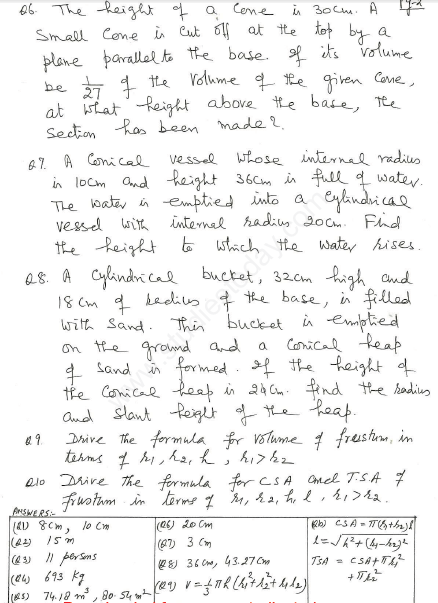 Pg-2
Q6. The height of a cone is 30cm. A
small cone is cut off at the top by a
plane parallel to the base. If its volume
be 1/27 of the volume of the given cone,
at what height above the base, the
section has been made?
Q.7. A conical vessel whose internal radius
is 10cm and height 36cm is full of water.
The water is emptied into a cylindrical
vessel with internal radius 20cm. Find
the height to which the water rises.
Q.8. A cylindrical bucket, 32cm high and
18cm of radius of the base, is filled
with sand. This bucket is emptied
on the ground and a conical heap
of sand is formed. If the height of
the conical heap is 24cm. find the radius
and slant height of the heap.
Q9. Drive the formula for volume of frustum, in
terms of r1, r2, h, r1>r2
Q.10 Drive the formula for CSA and T.S.A of
frustum in terms of r1, r2, h, l, r1>r2.
ANSWERS:-
(Q1) 8cm, 10cm
(Q2) 15m
(Q3) 11 persons
(Q4) 693 kg
(Q5) 74.18 m³, 80.54 m²
(Q6) 20cm
(Q7) 3cm
(Q8) 36cm, 43.27cm
(Q9) V=1/3πh(r1²+r2²+r1r2)
(Q10) CSA=π(r1+r2)l
l=√h²+(r1-r2)²
TSA = CSA+πr1²
+πr2²